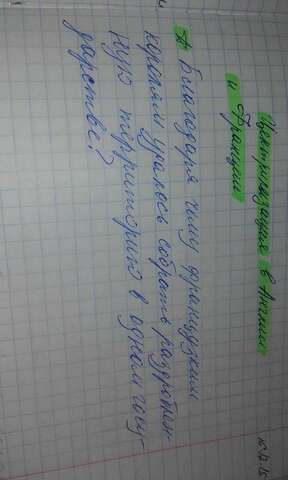 Централизация в Англии
и Франции
А Благодаря чему французским
королям удалось собрать раздроблен
ную территорию в одном госу
дарстве?